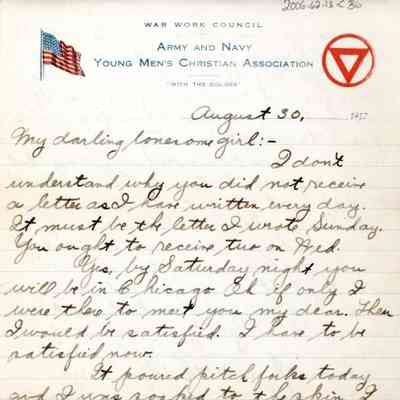 2006.62.13 < 30
WAR WORK COUNCIL
ARMY AND NAVY
YOUNG MEN'S CHRISTIAN ASSOCIATION
"WITH THE COLORS"
August 30, 1917
My darling lonesome girl:-
I don't
understand why you did not receive
a letter as I have written every day.
It must be the letter I wrote Sunday.
You ought to receive two on Wed.
Yes, by Saturday night you
will be in Chicago. Oh if only I
were there to meet you my dear. Then
I would be satisfied. I have to be
satisfied now.
It poured pitch forks today
and I was soaked to the skin. I